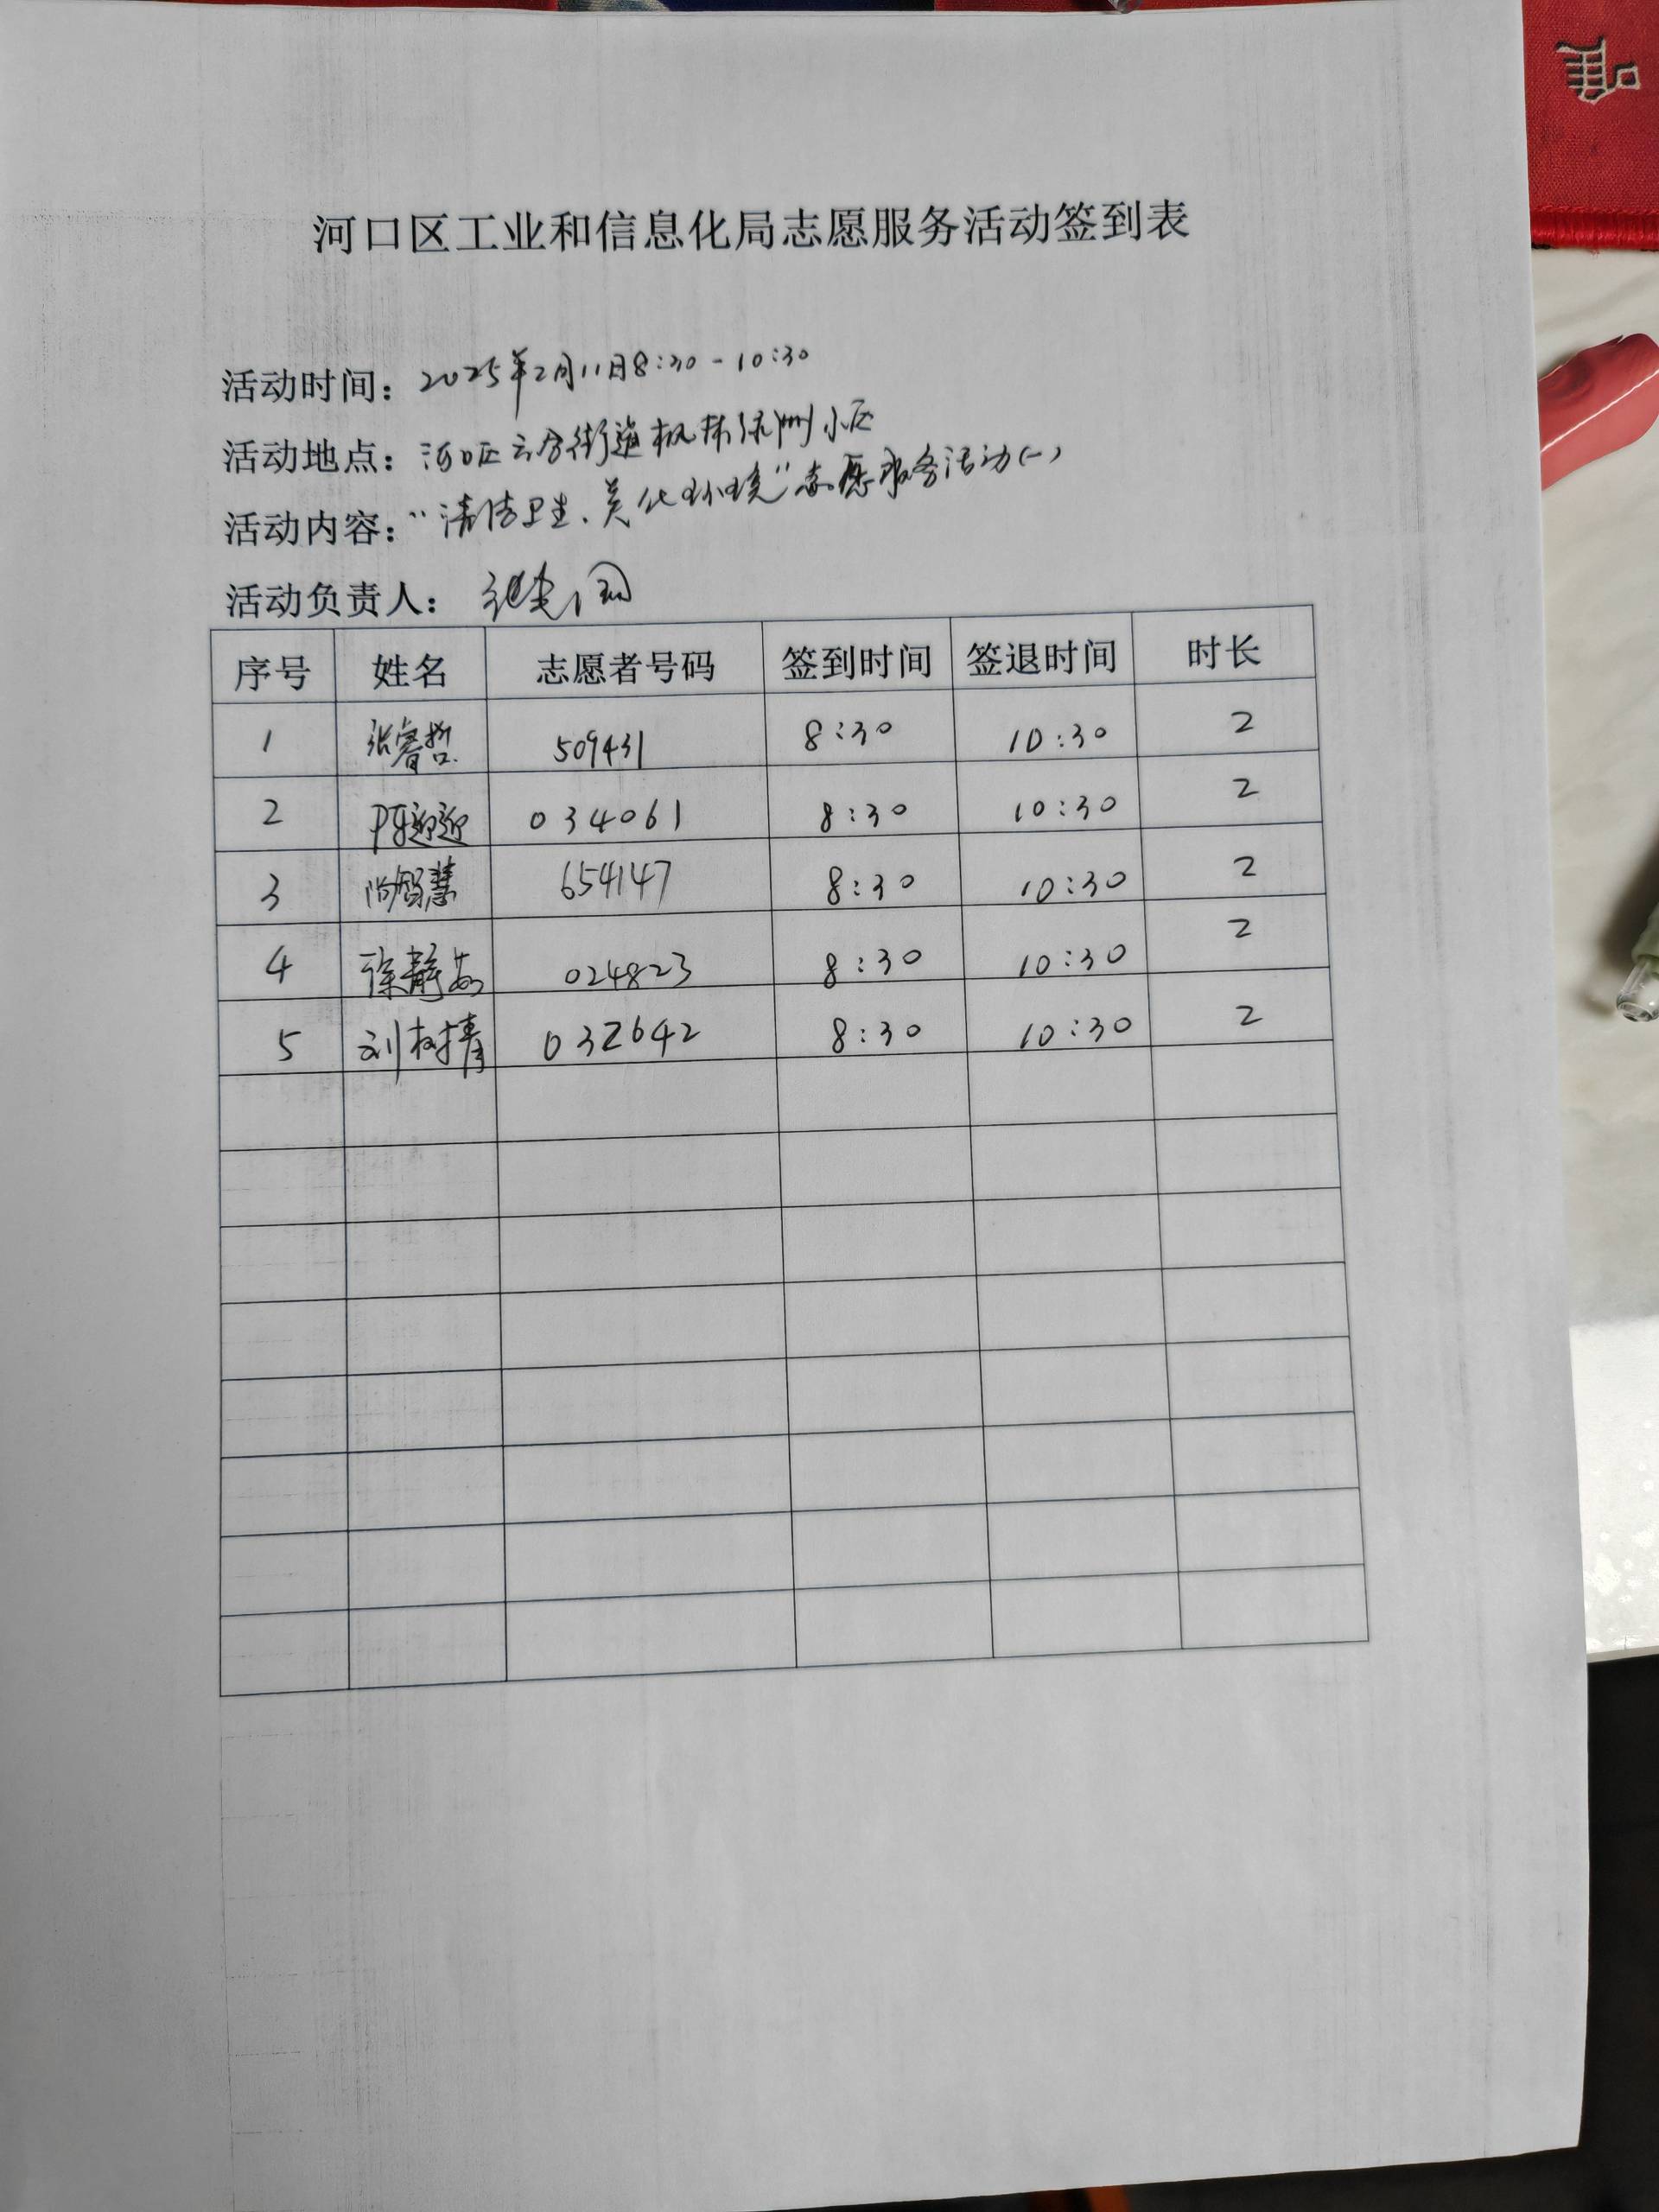 河口区工业和信息化局志愿服务活动签到表
活动时间：2025年2月11日8:30-10:30
活动地点：河口区六合街道枫林绿洲小区
活动内容："清洁卫生、美化环境"志愿服务活动(一)
活动负责人：
序号 姓名 志愿者号码 签到时间 签退时间 时长
1 张睿哲 509431 8:30 10:30 2
2 陈迎迎 034061 8:30 10:30 2
3 尚智慧 654147 8:30 10:30 2
4 徐静茹 024823 8:30 10:30 2
5 刘树倩 032642 8:30 10:30 2